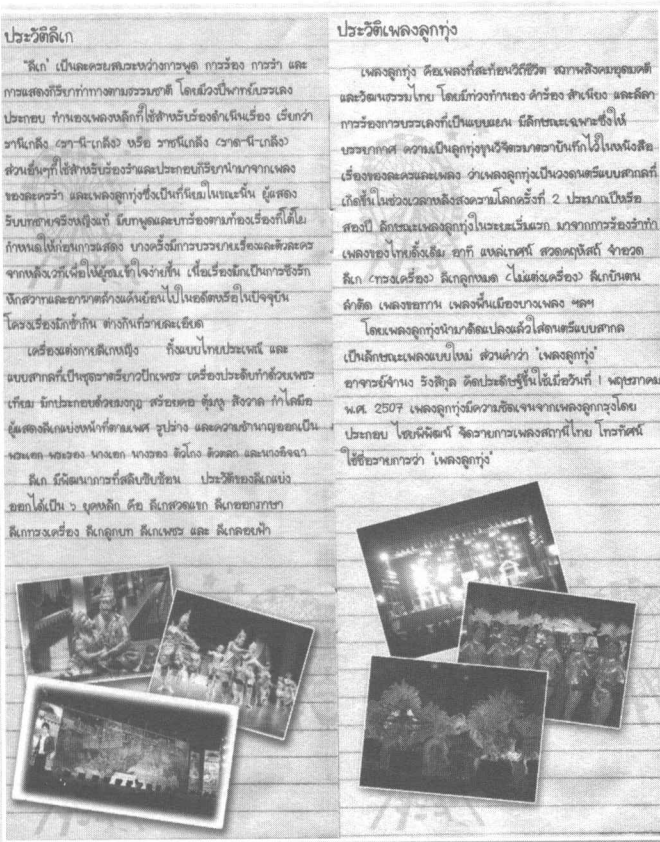 ประวัติลิเก
"ลิเก" เป็นละครผสมระหว่างการพูด การร้อง การรำ และ
การแสดงกิริยาท่าทางตามธรรมชาติ โดยมีวงปี่พาทย์บรรเลง
ประกอบ ทำนองเพลงหลักที่ใช้สำหรับร้องดำเนินเรื่อง เรียกว่า
รานิเกลิง <รา-นิ-เกลิง> หรือ ราชนิเกลิง <ราด-นิ-เกลิง>
ส่วนอื่นๆที่ใช้สำหรับร้องรำและประกอบกิริยานำมาจากเพลง
ของละครรำ และเพลงลูกทุ่งซึ่งเป็นที่นิยมในขณะนั้น ผู้แสดง
รับบทชายจริงหญิงแท้ มีบทพูดและบทร้องตามท้องเรื่องที่โต้โผ
กำหนดให้ก่อนการแสดง บางครั้งมีการบรรยายเรื่องและตัวละคร
จากหลังเวทีเพื่อให้ผู้ชมเข้าใจง่ายขึ้น เนื้อเรื่องมักเป็นการชิงรัก
หักสวาทและอาฆาตล้างแค้นย้อนไปในอดีตหรือในปัจจุบัน
โครงเรื่องมักซ้ำกัน ต่างกันที่รายละเอียด
เครื่องแต่งกายลิเกหญิง ทั้งแบบไทยประเพณี และ
แบบสากลที่เป็นชุดราตรียาวปักเพชร เครื่องประดับทำด้วยเพชร
เทียม มักประกอบด้วยมงกุฎ สร้อยคอ ตุ้มหู สังวาล กำไลมือ
ผู้แสดงลิเกแบ่งหน้าที่ตามเพศ รูปร่าง และความชำนาญออกเป็น
พระเอก พระรอง นางเอก นางรอง ตัวโกง ตัวตลก และนางอิจฉา
ลิเก มีพัฒนาการที่สลับซับซ้อน ประวัติของลิเกแบ่ง
ออกได้เป็น ๖ ยุคหลัก คือ ลิเกสวดแขก ลิเกออกภาษา
ลิเกทรงเครื่อง ลิเกลูกบท ลิเกเพชร และ ลิเกลอยฟ้า
ประวัติเพลงลูกทุ่ง
เพลงลูกทุ่ง คือเพลงที่สะท้อนวิถีชีวิต สภาพสังคมอุดมคติ
และวัฒนธรรมไทย โดยมีท่วงทำนอง คำร้อง สำเนียง และลีลา
การร้องการบรรเลงที่เป็นแบบแผน มีลักษณะเฉพาะซึ่งให้
บรรยากาศ ความเป็นลูกทุ่งขุนวิจิตรมาตราบันทึกไว้ในหนังสือ
เรื่องของละครและเพลง ว่าเพลงลูกทุ่งเป็นวงดนตรีแบบสากลที่
เกิดขึ้นในช่วงเวลาหลังสงครามโลกครั้งที่ 2 ประมาณปีหรือ
สองปี ลักษณะเพลงลูกทุ่งในระยะเริ่มแรก มาจากการร้องรำทำ
เพลงของไทยดั้งเดิม อาทิ แหล่เทศน์ สวดคฤหัสถ์ จำอวด
ลิเก <ทรงเครื่อง> ลิเกลูกหมด <ไม่แต่งเครื่อง> ลิเกบันตน
ลำตัด เพลงขอทาน เพลงพื้นเมืองบางเพลง ฯลฯ
โดยเพลงลูกทุ่งนำมาดัดแปลงแล้วใส่ดนตรีแบบสากล
เป็นลักษณะเพลงแบบใหม่ ส่วนคำว่า "เพลงลูกทุ่ง"
อาจารย์จำนง รังสิกุล คิดประดิษฐ์ขึ้นใช้เมื่อวันที่ 1 พฤษภาคม
พ.ศ. 2507 เพลงลูกทุ่งมีความชัดเจนจากเพลงลูกกรุงโดย
ประกอบ ไชยพิพัฒน์ จัดรายการเพลงสถานีไทย โทรทัศน์
ใช้ชื่อรายการว่า "เพลงลูกทุ่ง"